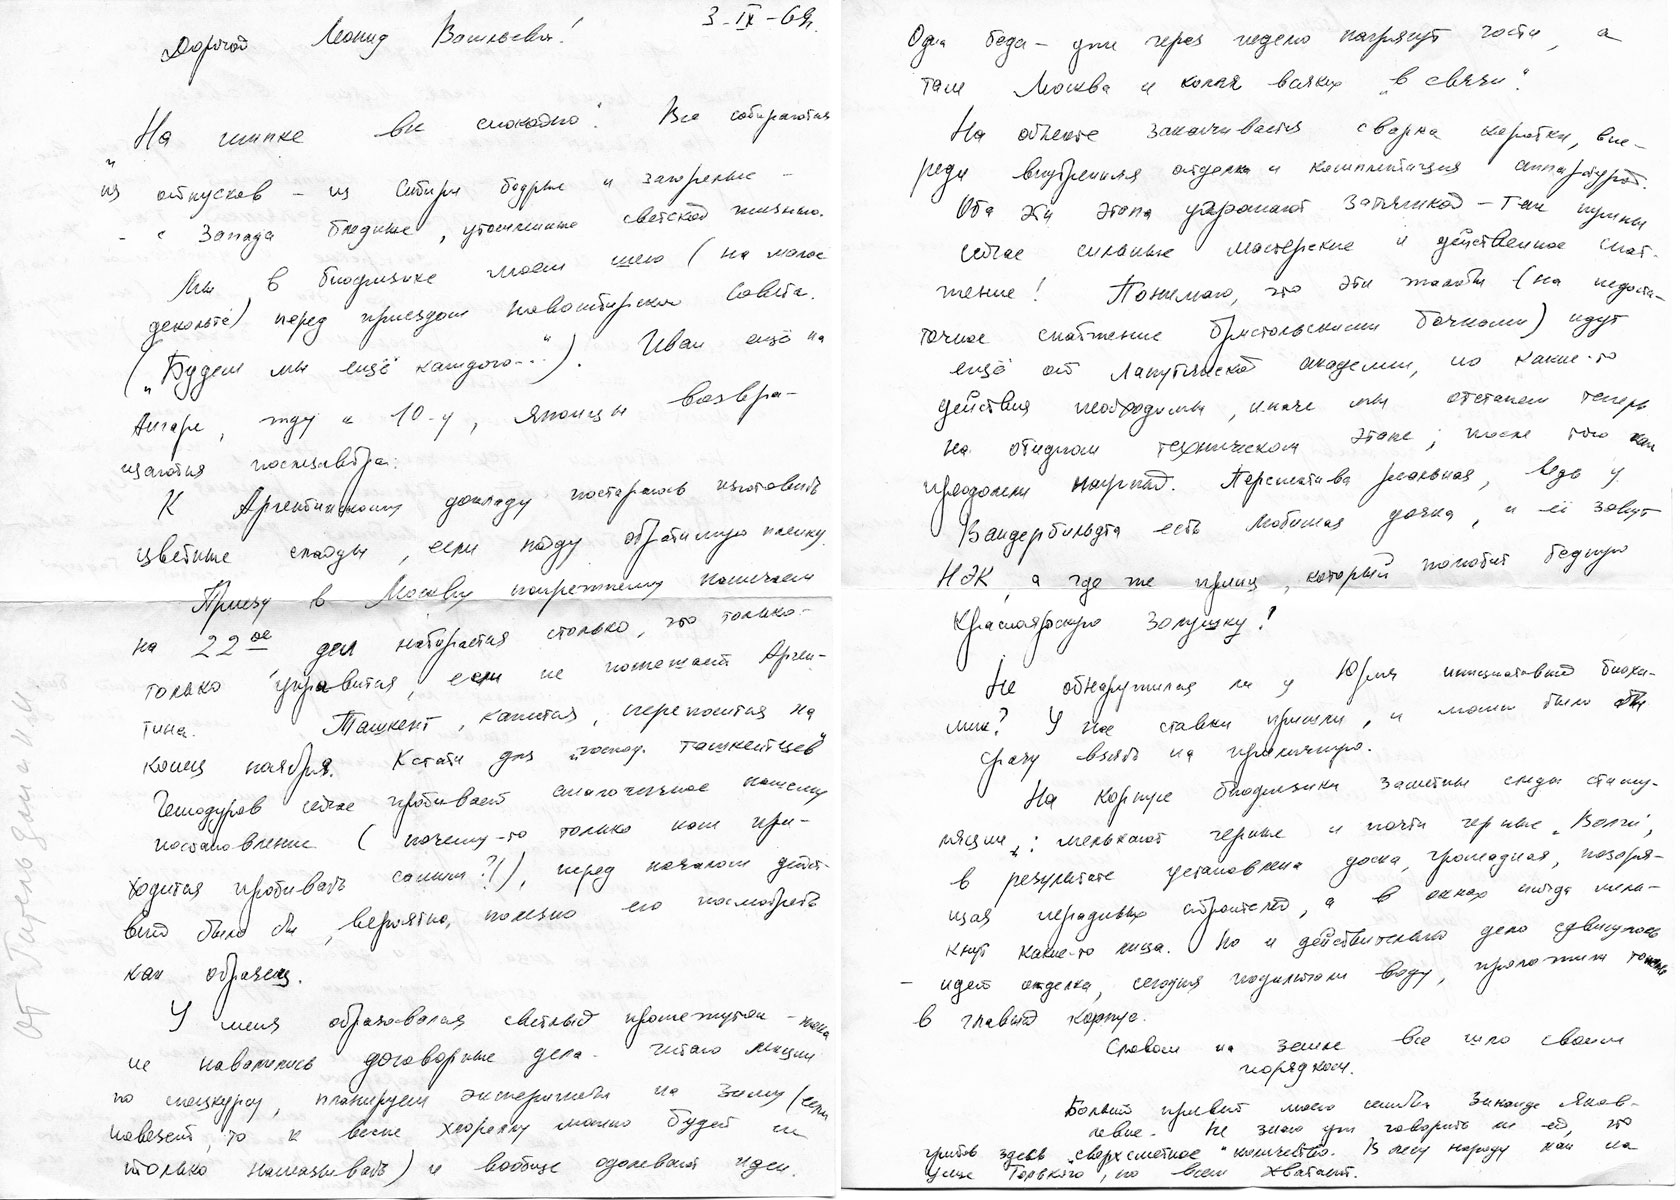 3-IX-69г.
Дорогой Леонид Васильевич!
"На шипке все спокойно". Все собираются
из отпусков – из Сибири бодрые и загорелые –
- с Запада бледные, утомленные светской жизнью.
Мы в биофизике моем шею (на малое
декольте) перед приездом Новосибирского Совета.
("Будем мы ещё каждого..."). Иван ещё на
Ангаре, жду к 10-у, японцы возвра-
щаются послезавтра.
К Аргентинскому докладу постараюсь изготовить
цветные слайды, если найду обратимую пленку.
Приезд в Москву попрежнему намечаем
на 22ое дел набирается столько, что только-
только управится, если не помешает Арген-
тина. Ташкент, кажется, переносится на
конец ноября. Кстати для "господ ташкентцев"
Гительзодуров сейчас пробивает аналогичное нашему
постановление (почему-то только нам при-
ходится пробивать самим?!), перед началом дейст-
вий было бы, вероятно, полезно его посмотреть
как образец.
У меня образовался светлый промежуток – пока
не навалились договорные дела. Читаю лекции
по спецкурсу, планируем эксперименты на зиму (если
повезет, то к весне хлореллу можно будет не
только намазывать) и вообще одолевают идеи.
От Гительзона И.И.
Одна беда – уже через неделю нагрянут гости, а
там Москва и кончая всяких "в связи".
На объекте заканчивается сварка коробки, впе-
реди внутренняя отделка и комплектация аппаратурой.
Оба эти этапа угрожают затяжкой – так нужны
сейчас сильные мастерские и действенное снаб-
жение! Понимаю, что эти жалобы (на недоста-
точное снабжение бристольскими бочками) идут
ещё от Лапутянской академии, но какие-то
действия необходимы, иначе мы отстанем теперь
на обидном техническом этапе, после того как
преодолели научный. Перспектива реальная, ведь у
Вандербильдта есть любимая дочка, и её зовут
НЭК, а где же принц, который полюбит бедную
Красноярскую Золушку!
Не обнаружился ли у Юрия инициативный биохи-
мик? У нас ставки пришли, и можно было бы
сразу взять на приличную.
На корпусе биофизики заметны следы стиму-
ляции: мелькают черные и почти черные "Волги",
в результате установлена доска, громадная, позоря-
щая нерадивых строителей, а в окнах иногда мель-
кнут какие-то лица. Но и действительно дело сдвинулось
– идет отделка, сегодня подключили воду, проложили тоннель
в главный корпус.
Словом на земле все шло своим
порядком.
Большой привет моей семьи Зинаиде Яков-
левне. Не знаю уж говорить ли ей, что
грибов здесь "сверхсметное" количество. В лесу народу как на
улице Горького, но всем хватает.